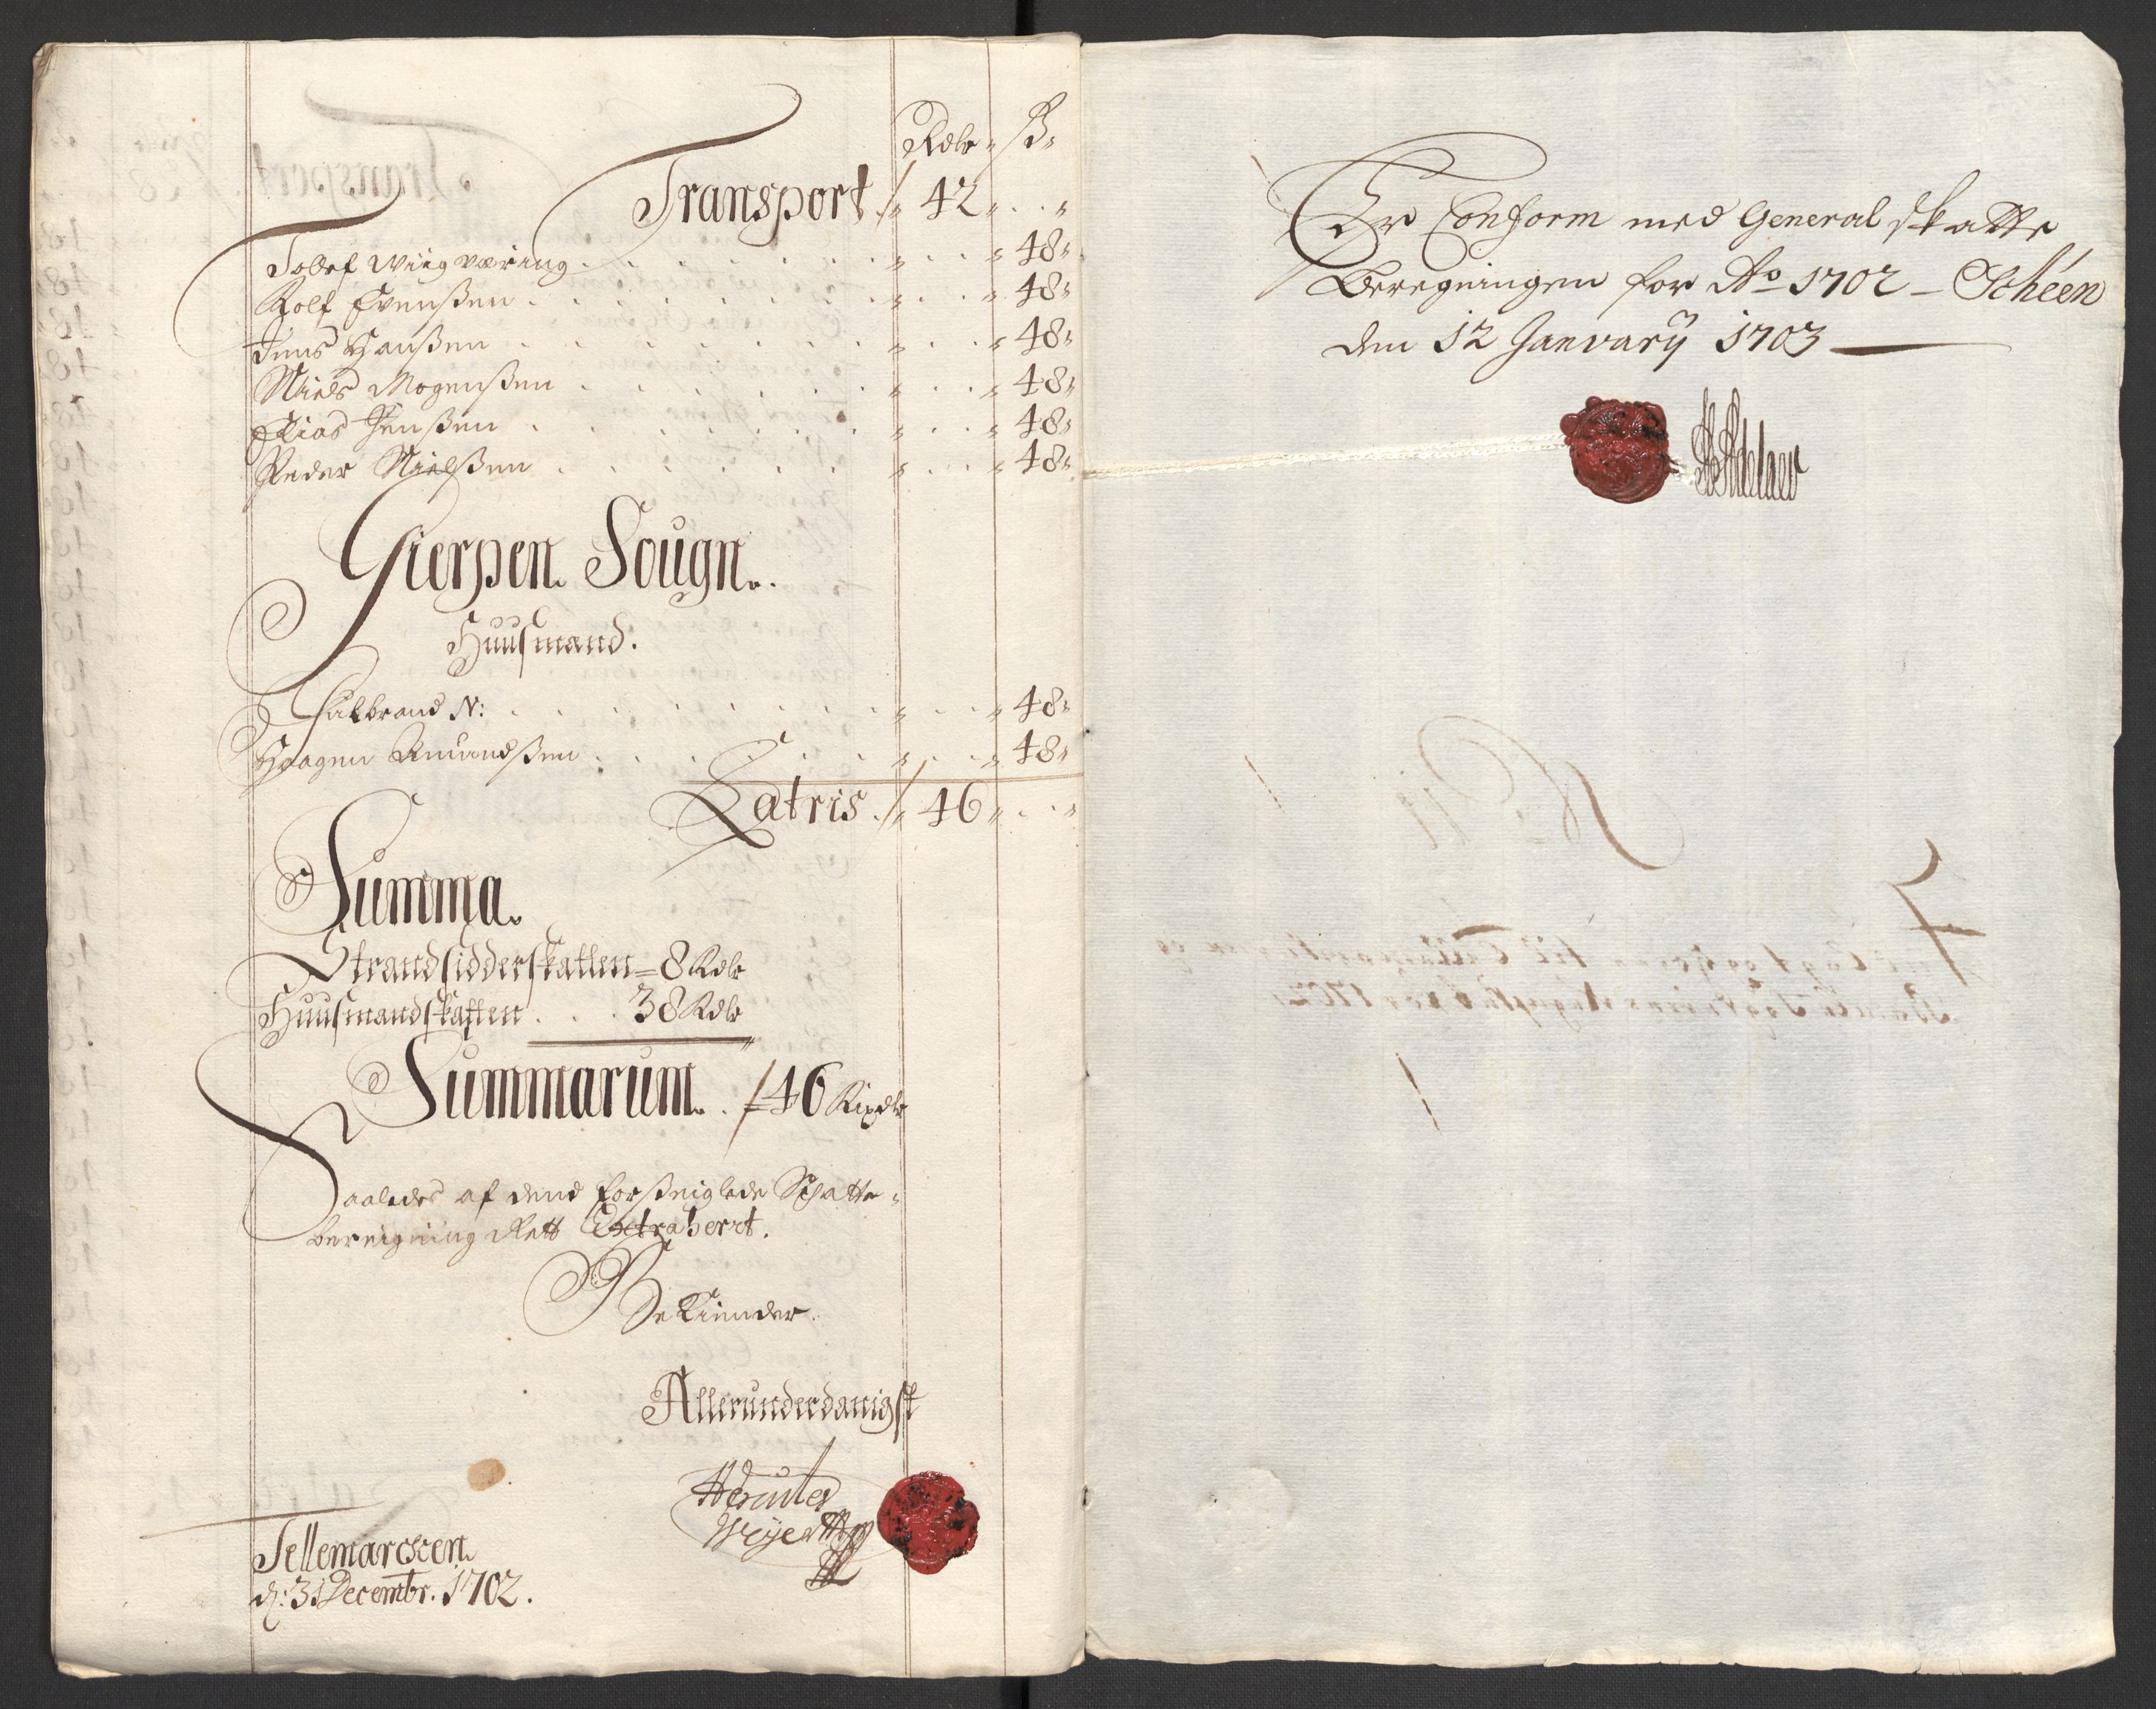 Rdlr ß
Transport 42
Tollef Wiig væring 48
Rolf Evenßen 48
Jens Hanßen 48
Niels Mogenßen 48
Elias Jenßen 48
Peder Nielßen 48
Gierpen Sougn.
Huusmænd.
Halbrand N: 48
Haagen Amundßen 48
Latris 46
Summa.
Strandsidderskatten = 8 Rdlr
Huusmandskatten . . . 38 Rdlr
Summarum. 46 Rixdlr
Saaledes af dend forßeiglede Schatte-
bereigning Rett Extraherrt.
Bekiender
Allerunderdanigst
Hercules
Weyer
Tellemarcken
d: 31 Decembr. 1702.
Er Conform med General skatte
Beregningen for Ao 1702 - Schéen
den 12 Janvarÿ 1703